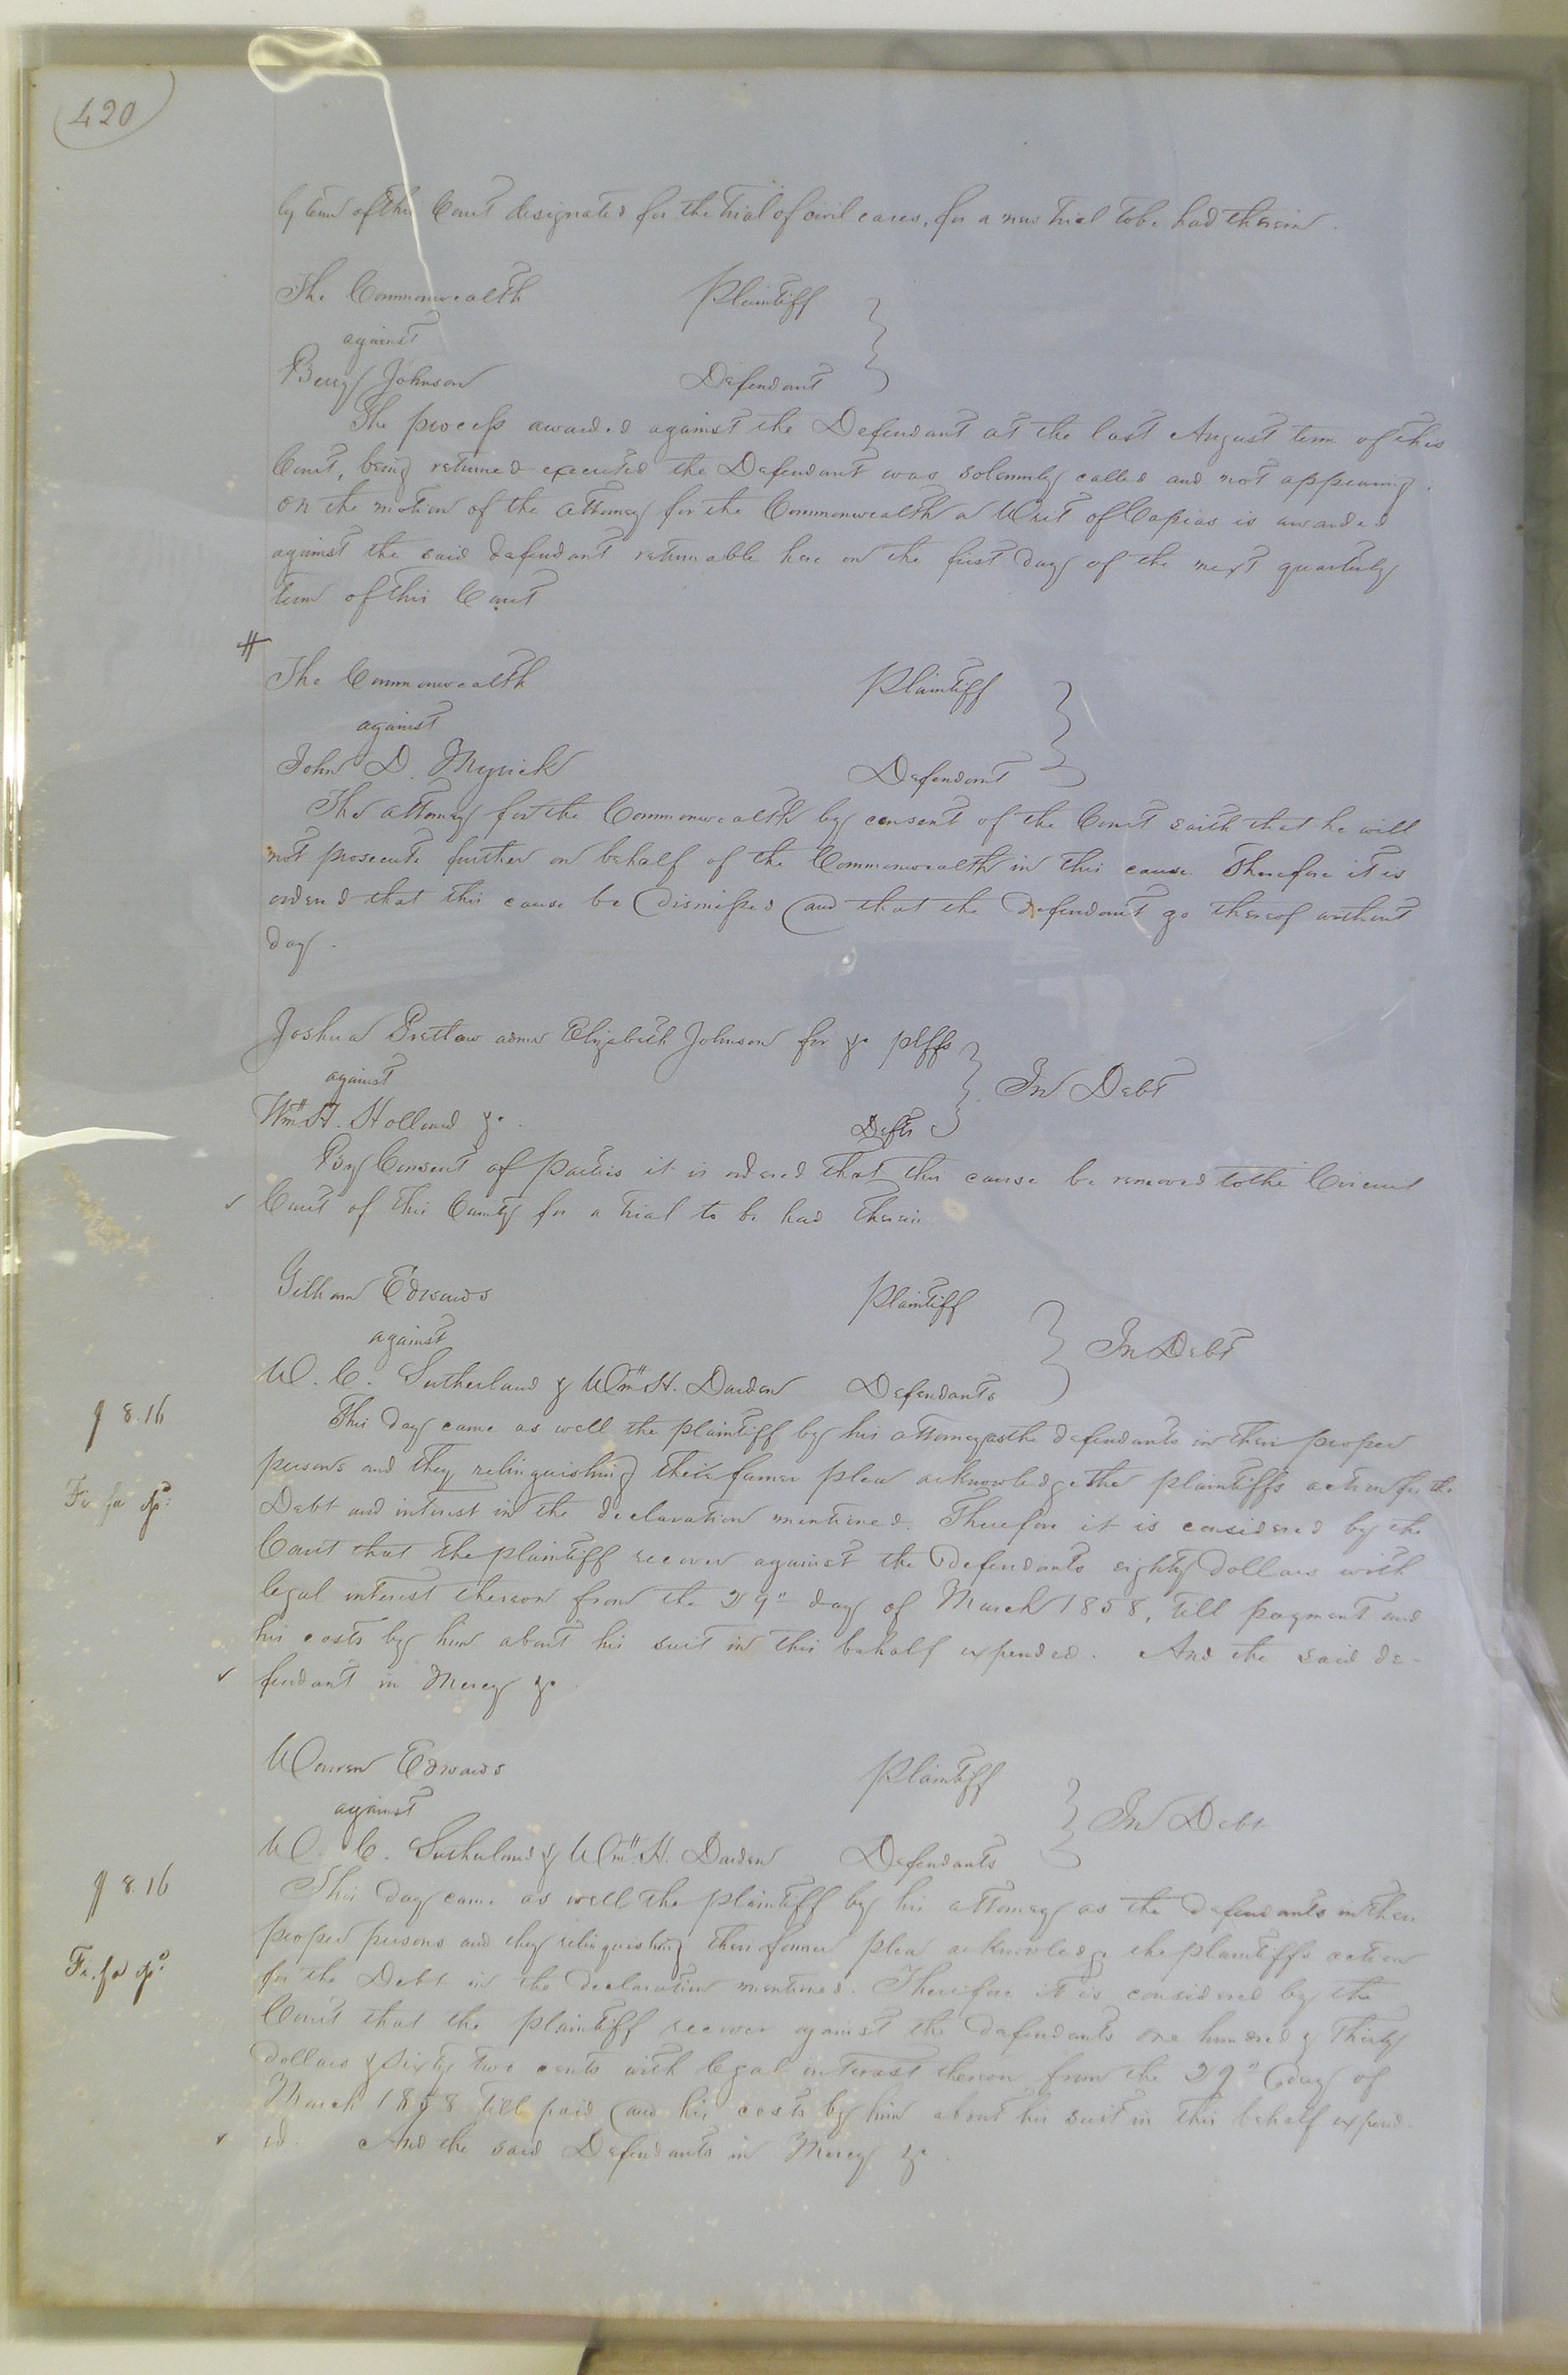 420
ly term of this Court designated for the trial of civil cases, for a new trial to be had therein.
The Commonwealth Plaintiff
against
Benj Johnson Defendant
The process awarded against the Defendant at the last August term of this
Court, being returned executed the Defendant was solemnly called and not appearing.
on the motion of the attorney for the Commonwealth a Writ of Capias is awarded
against the said defendant returnable here on the first day of the next quarterly
term of this Court
#
The Commonwealth Plaintiff
against
John D. Myrick Defendant
The attorney for the Commonwealth by consent of the Court saith that he will
not prosecute further on behalf of the Commonwealth in this cause Therefore it is
ordered that this cause be dismissed and that the defendant go thereof without
day.
Joshua Pretlow admr Elizabeth Johnson for &c plffs
against In Debt
Wm H. Holland &c. Defts
By Consent of parties it is ordered that this cause be removed to the Circuit
✓ Court of this County for a trial to be had therein
Gilliam Edwards Plaintiff
against In Debt
W. C. Sutherland & Wm H. Darden Defendants
8.16
This day came as well the plaintiff by his attorney as the defendants in their proper
persons and they relinquishing their former plea acknowledge the plaintiffs action for the
Fi fa
Debt and interest in the declaration mentioned. Therefore it is considered by the
Court that the plaintiff recover against the defendants eighty dollars with
legal interest thereon from the 29" day of March 1858, till payment and
his costs by him about his suit in this behalf expended. And the said de-
✓ fendant in Mercy &c.
Warren Edwards Plaintiff
against In Debt
W. C. Sutherland & Wm H. Darden Defendants
8.16
This day came as well the plaintiff by his attorney as the defendants in their
proper persons and they relinquishing their former plea acknowledge the plaintiffs action
Fi. fa
for the Debt in the declaration mentioned. Therefore it is considered by the
Court that the plaintiff recover against the defendants one hundred & thirty
dollars & sixty two cents with legal interest thereon from the 29" day of
March 1858 till paid and his costs by him about his suit in this behalf expend-
✓ ed. And the said Defendants in Mercy &c.